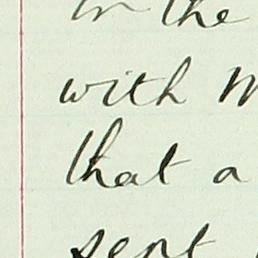 in the
with M
that a
sent